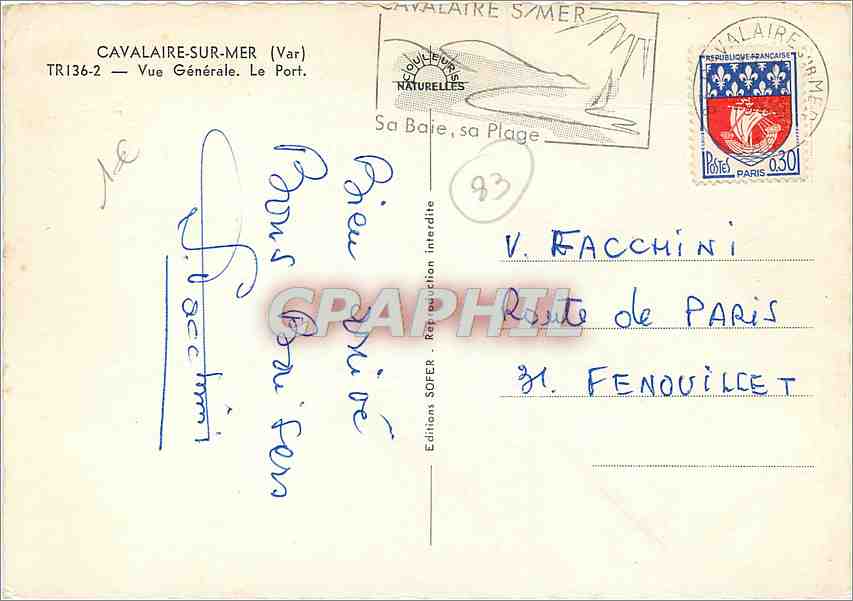 CAVALAIRE-SUR-MER (Var)
TR136-2 — Vue Générale. Le Port.
CAVALAIRE S/MER
COULEURS
NATURELLES
Sa Baie, sa Plage
CAVALAIRE-S-MER
REPUBLIQUE FRANÇAISE
POSTES 0,30
PARIS
1€
83
Bien arrivé
Bons Baisers
V. Facchini
Editions SOFER - Reproduction interdite
CPAPHIL
V. FACCHINI
Route de PARIS
31. FENOUILLET